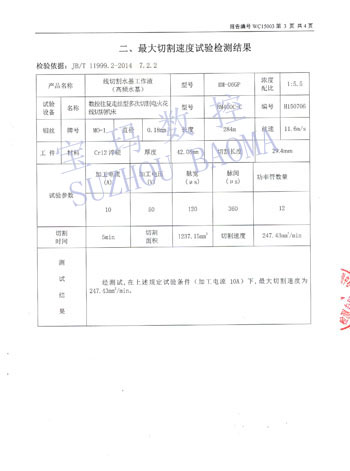 报告编号 WC15003 第 3 页 共 4 页
二、最大切割速度试验检测结果
检验依据: JB/T 11999.2-2014 7.2.2
产品名称 线切割水基工作液 (高频水基) 型号 BM-D6GF 浓度配比 1:5.5
试验设备 名称 数控往复走丝型多次切割电火花线切割机床 型号 编号 H150706
钼丝 牌号 MO-1 直径 0.18mm 长度 284m 丝速 11.6m/s
工件 材料 Cr12 淬硬 厚度 42.08mm 切割长度 29.4mm
试验参数 加工电流 (A) 加工电压 (V) 脉宽 (μs) 脉间 (μs) 功率管数量
10 80 120 360 12
切割时间 5min 切割面积 1237.15mm² 切割速度 247.43mm²/min
测试结果
经测试,在上述规定试验条件(加工电流 10A)下,最大切割速度为
247.43mm²/min.
宝玛数控
SUZHOU BAOMA